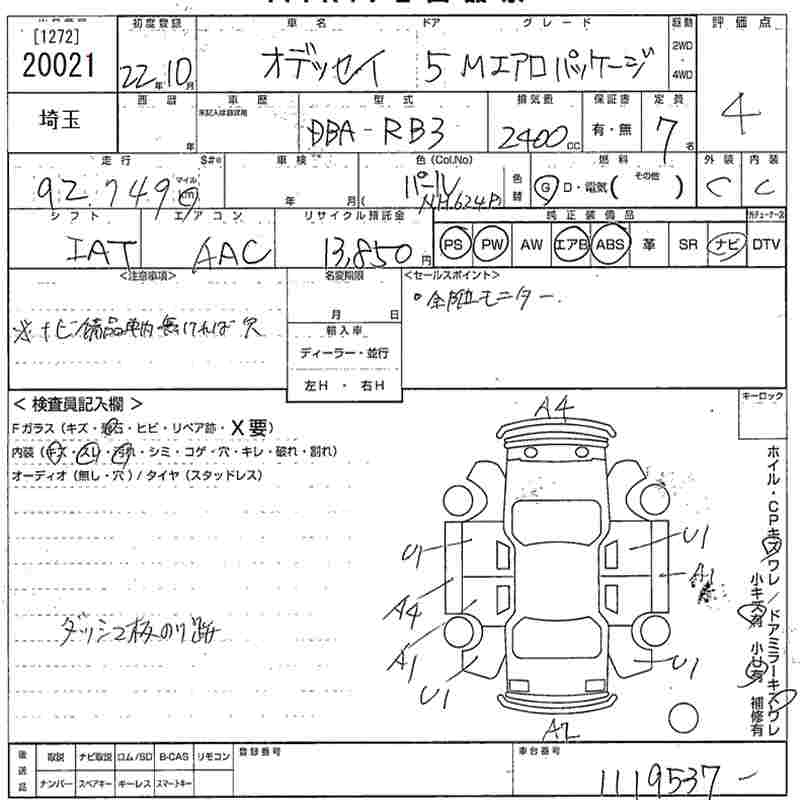 [1272]
20021
初度登録
車名
ドア
グレード
駆動
評価点
22年10月
オデッセイ
5 Mエアロパッケージ
2WD
・
4WD
埼玉
西暦
年
車歴
未記入は自家用
型式
排気量
保証書
定員
4
DBA-RB3
2400cc
有・無
7名
走行
S#*
車検
色(Col.No)
燃料
外装
内装
92,749
マイル
km
年 月(
パール
NH624P)
色替
G D・電気( その他 )
C
C
シフト
エアコン
リサイクル預託金
純正装備品
IAT
AAC
13,850円
PS PW AW エアB ABS 革 SR ナビ DTV
<注意事項>
名変期限
<セールスポイント>
月 日
輸入車
ディーラー・並行
左H ・ 右H
<検査員記入欄>
Fガラス(キズ・飛石・ヒビ・リペア跡・X要)
内装(キズ・スレ・汚れ・シミ・コゲ・穴・キレ・破れ・割れ)
オーディオ(無し・穴)/タイヤ(スタッドレス)
キーロック
A4
U1
U1
A4
A1
A1
U1
U1
A2
ホイル・CPキズワレ/ドアミラーキズワレ
小キズ有 小U有 補修有
後送品
取説 ナビ取説 ロム/SD B-CAS リモコン
ナンバー スペアキー キーレス スマートキー
登録番号
車台番号
1119537 -